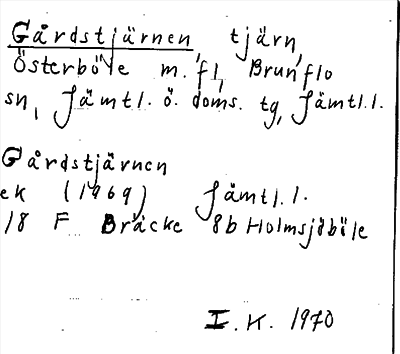 Gårdstjärnen, tjärn,
Österböle m.fl., Brunflo
sn, Jämtl. ö. doms. tg, Jämtl.l.
Gårdstjärnen
ek (1969) Jämtl.l.
18 F Bräcke 8b Holmsjöböle
I.K. 1970